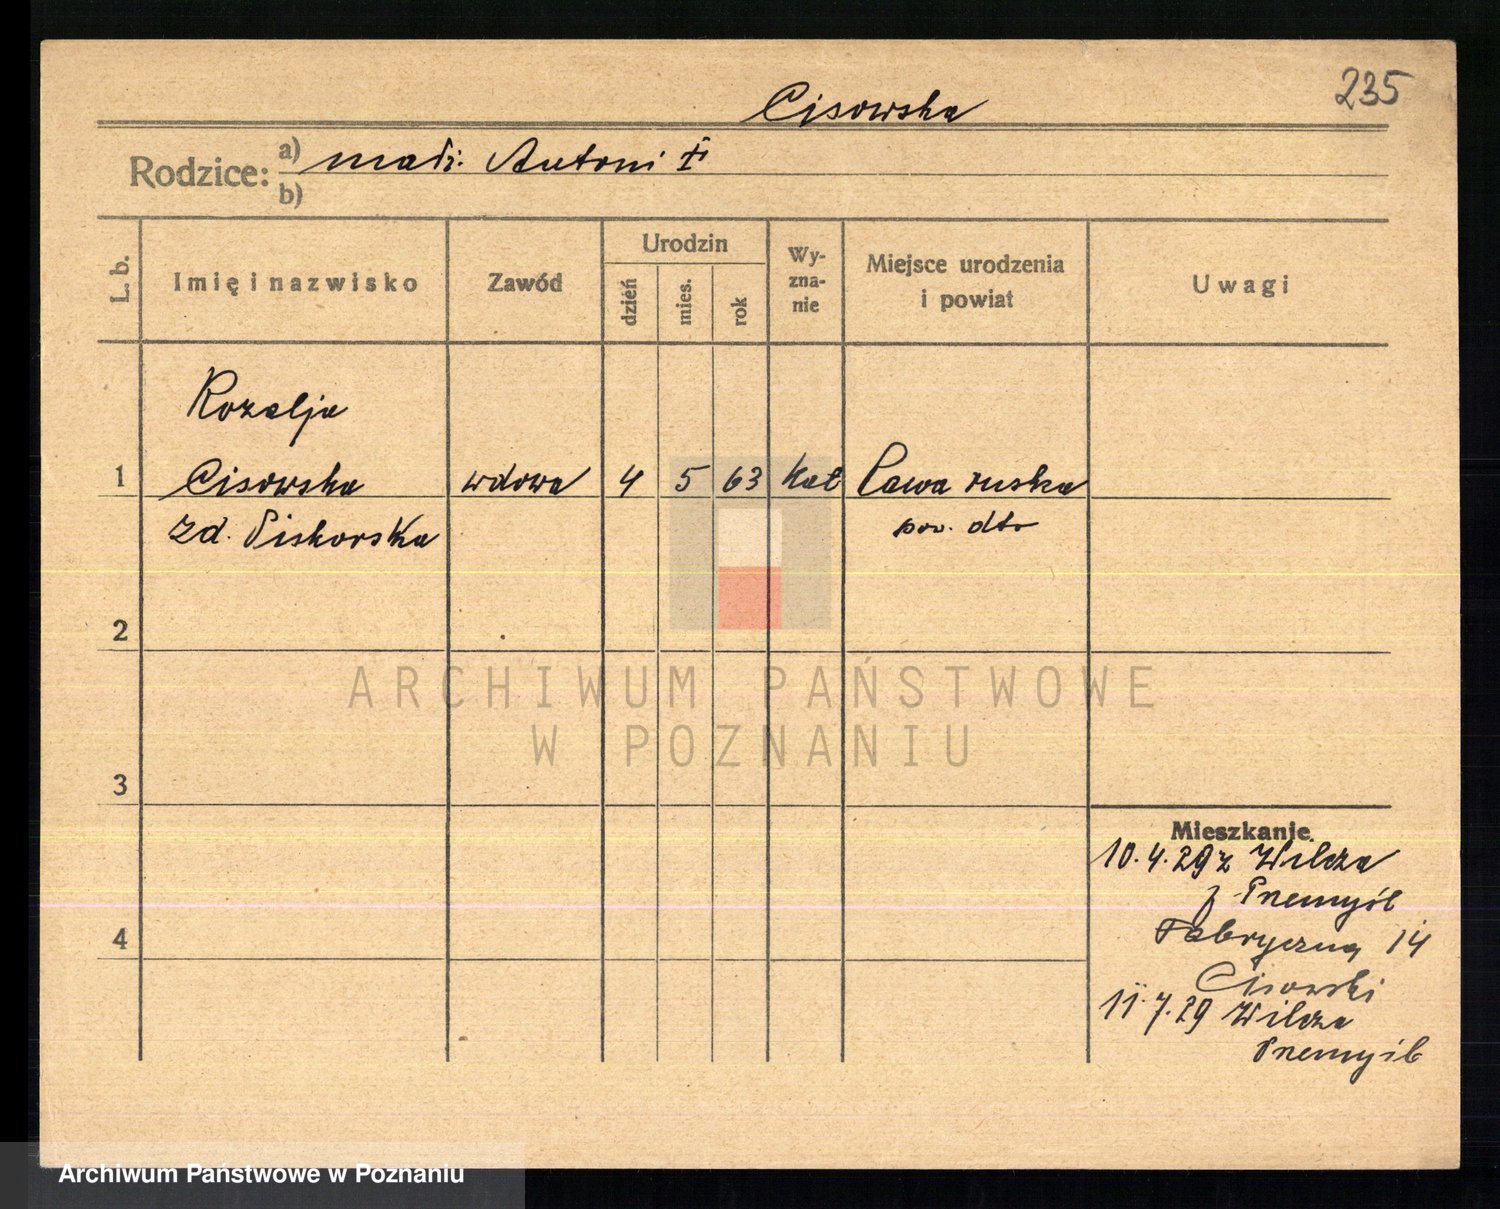 235
Cisowska
Rodzice: a) małż. Antoni †
b)
L. b.
Imię i nazwisko
Zawód
Urodzin
dzień
mies.
rok
Wy-
zna-
nie
Miejsce urodzenia
i powiat
Uwagi
Rozalja
1 Cisowska wdowa 4 5 63 kat Rawa ruska
zd. Piskorska pow. dto
2
3
4
Mieszkanie
10.4.29 z Wilcza
p Przemyśl
Fabryczną 14
Cisowski
11.7.29 Wilcza
Przemyśl
ARCHIWUM PAŃSTWOWE
W POZNANIU
Archiwum Państwowe w Poznaniu